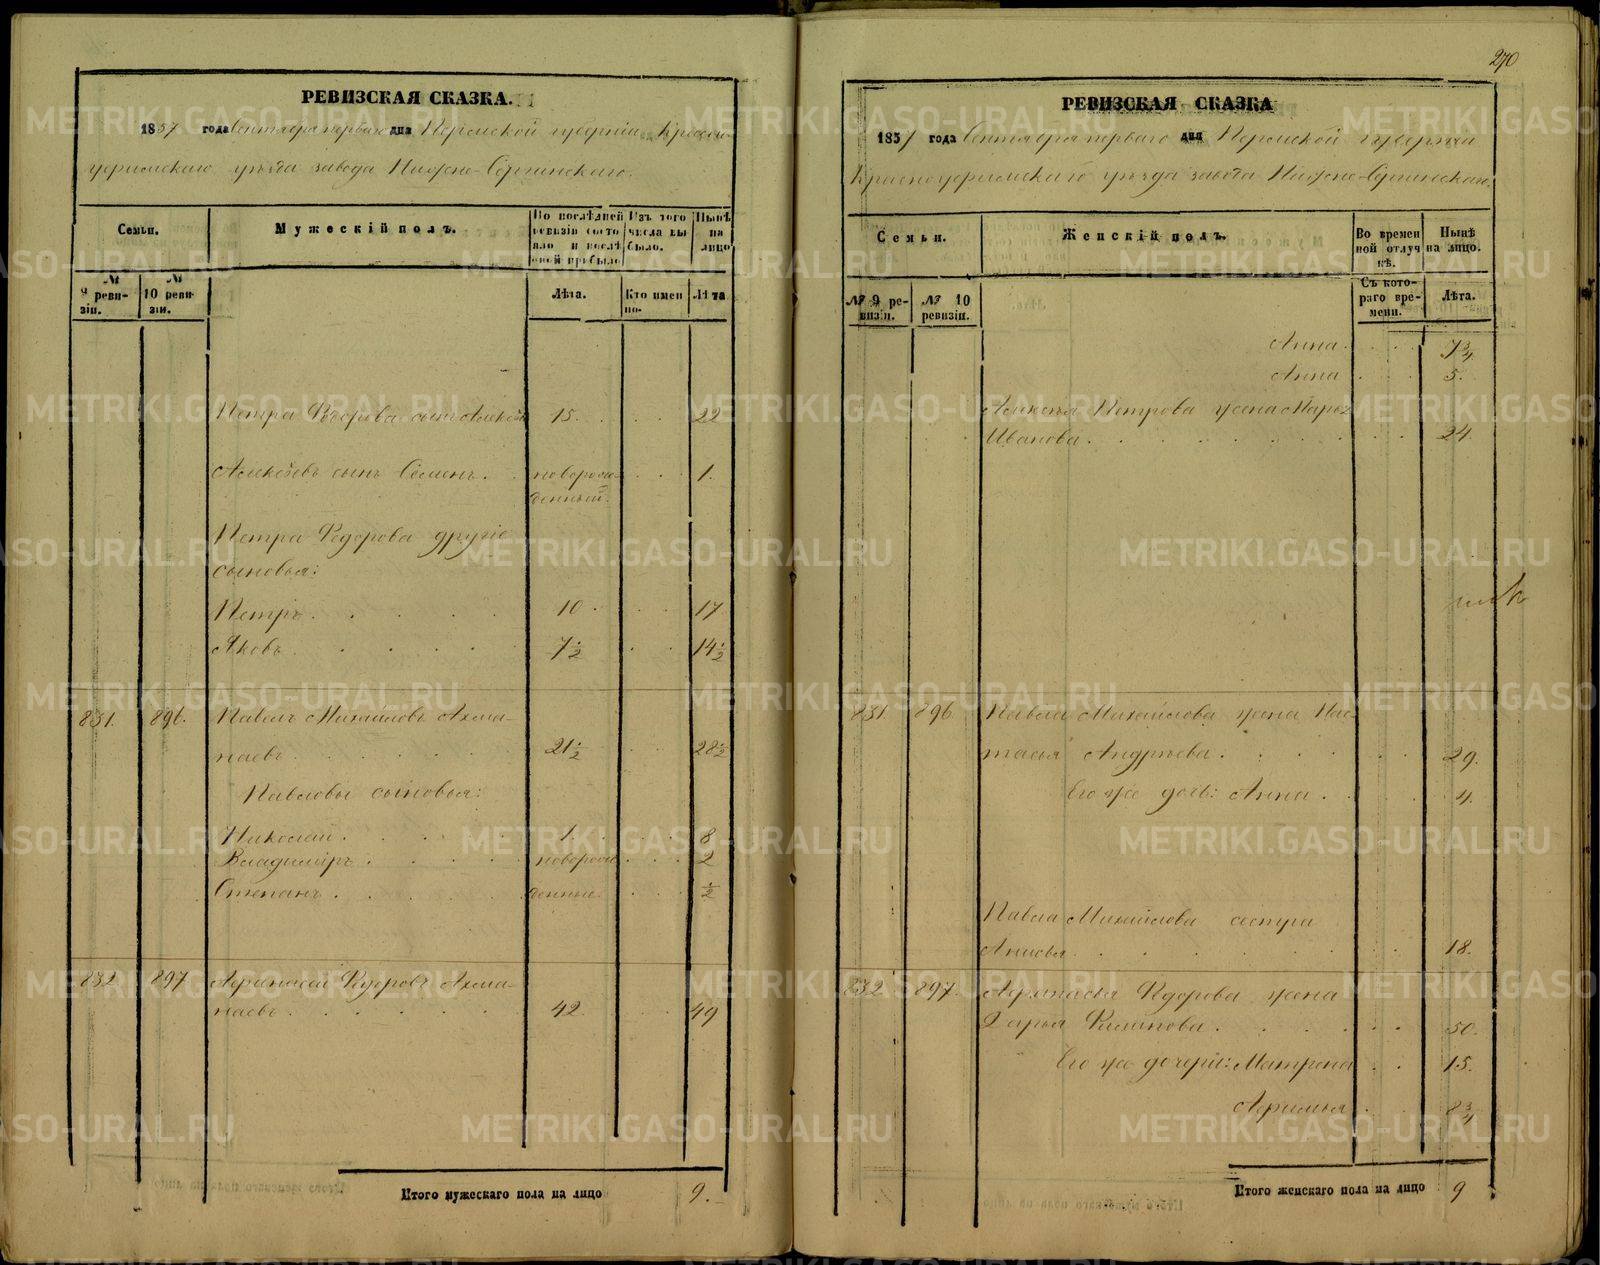 РЕВИЗСКАЯ СКАЗКА.
1857 года Сентября перваго дня Пермской губернiи Красно-
уфимскаго уѣзда завода Нижне-Сергинскаго.
Семьи.
Мужескiй полъ.
По послѣдней ревизiи состояло и послѣ оной прибыло
Изъ того числа выбыло.
Нынѣ на лицо
№ 9 ревизiи.
№ 10 ревизiи.
Лѣта.
Кто именно.
Лѣта
Петра Федорова сынъ Алексѣй 15. 22
Алексѣевъ сынъ Семенъ. новорож- 1.
денный.
Петра Федорова другiе
сыновья:
Петръ. 10 17
Яковъ. 7½ 14½
831. 896. Павелъ Михайловъ Ахма-
наевъ 21½ 28½
Павловы сыновья:
Николай. 1. 8
Владимiръ. новорож 2
Степанъ. денные. ½
832 897 Афанасей Федоровъ Ахма-
наевъ. 42. 49
Итого мужескаго пола на лицо 9.
270
РЕВИЗСКАЯ СКАЗКА
1857 года Сентября перваго дня Пермской губернiи
Красноуфимскаго уѣзда завода Нижне-Сергинскаго.
Семьи.
Женскiй полъ.
Во временной отлучкѣ.
Нынѣ на лицо.
№ 9 ревизiи.
№ 10 ревизiи.
Съ котораго времени.
Лѣта.
Анна. 7¾
Анна 5.
Алексѣя Петрова жена Марья
Иванова. 24.
831. 896 Павла Михайлова жена Нас-
тасья Андрѣева. 29.
Его же дочь: Анна. 4.
Павла Михайлова сестра
Анисья. 18.
832 897. Афанасья Федорова жена
Дарья Филипова. 50.
Его же дочери: Матрена 15.
Афимья 8¾
Итого женскаго пола на лицо 9
METRIKI.GASO-URAL.RU